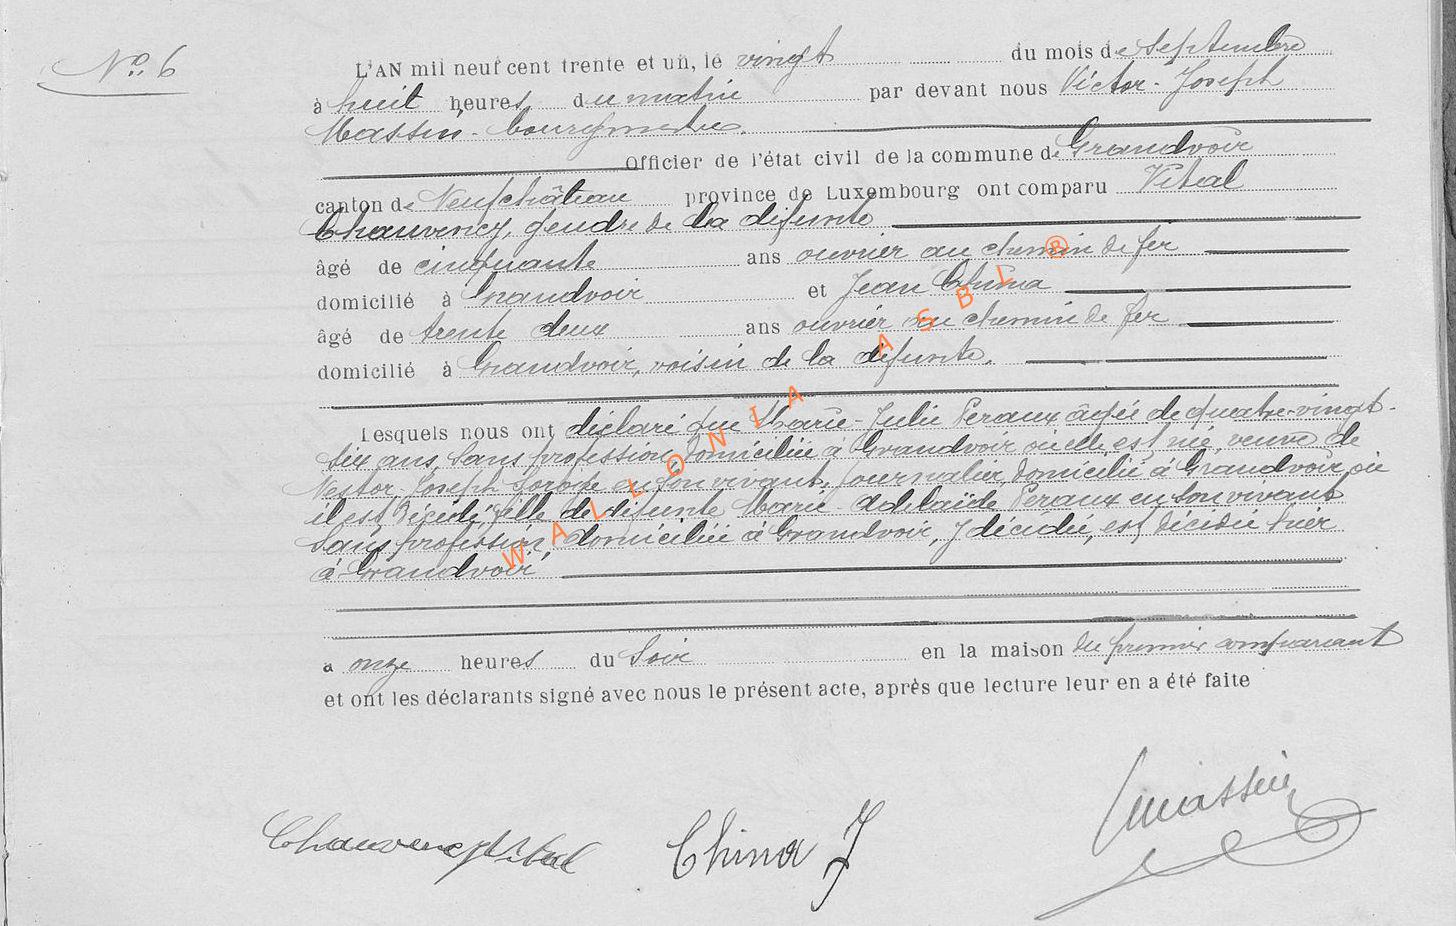 No. 6
L'AN mil neuf cent trente et un, le vingt du mois de Septembre
à huit heures du matin par devant nous Victor-Joseph
Massin-bourgmestre.
Officier de l'état civil de la commune de Grandvoir
canton de Neufchâteau province de Luxembourg ont comparu Vital
Chauvency, gendre de la défunte
âgé de cinquante ans ouvrier au chemin de fer
domicilié à Grandvoir et Jean China
âgé de trente deux ans ouvrier au chemin de fer
domicilié à Grandvoir, voisin de la défunte.
Lesquels nous ont déclaré que Marie-Julie Peraux âgée de quatre-vingt-
six ans, sans profession, domiciliée à Grandvoir où elle est née, veuve de
Nestor-Joseph en son vivant, journalier, domicilié à Grandvoir, où
il est décédé, fille de défunte Marie-Adelaïde Peraux en son vivant
sans profession, domiciliée à Grandvoir, y décédée, est décédée hier
à Grandvoir,
à onze heures du soir en la maison du premier comparant
et ont les déclarants signé avec nous le présent acte, après que lecture leur en a été faite
Chauvency Vital China J Massin
WALLONIA ASBL ®